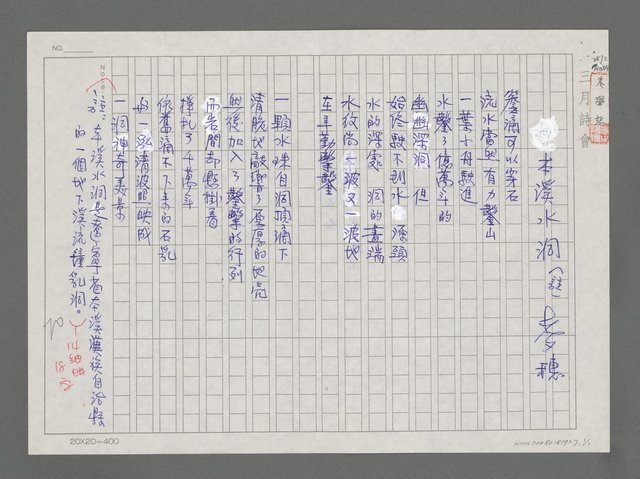 三月詩會
本溪水洞（註） 麥穗
聲滴可以穿石
流水當然有力鑿山
一葉小舟駛進
水鑿了億萬年的
幽幽深洞 但
始終駛不到水源頭
水的深處 洞的盡端
水紋尚一波又一波地
在辛勤鑿鑿
一顆水珠自洞頂滴下
清脆地敲響了厚厚的地壳
然後加入了鑿擊的行列
而岩間却懸掛着
掙扎了千萬年
依舊滴不下來的石乳
與一泓清波照映成
一洞神奇美景
（註：本溪水洞是遼寧省本溪滿族自治縣
的一個地下溪流鐘乳洞。）
14細明
20
NO.
Note
20X20=400